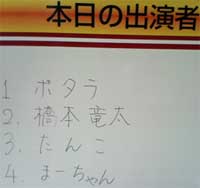 本日の出演者
1 ポタラ
2. 橋本竜太
3. たんこ
4. まーちゃん